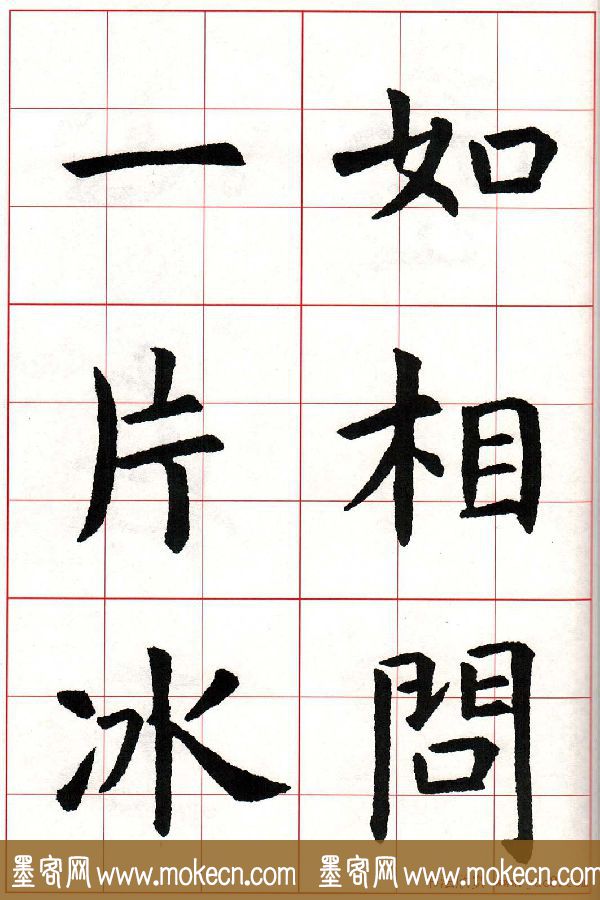 如相問
一片冰
墨客网 www.mokecn.com 墨客网 www.mokecn.com